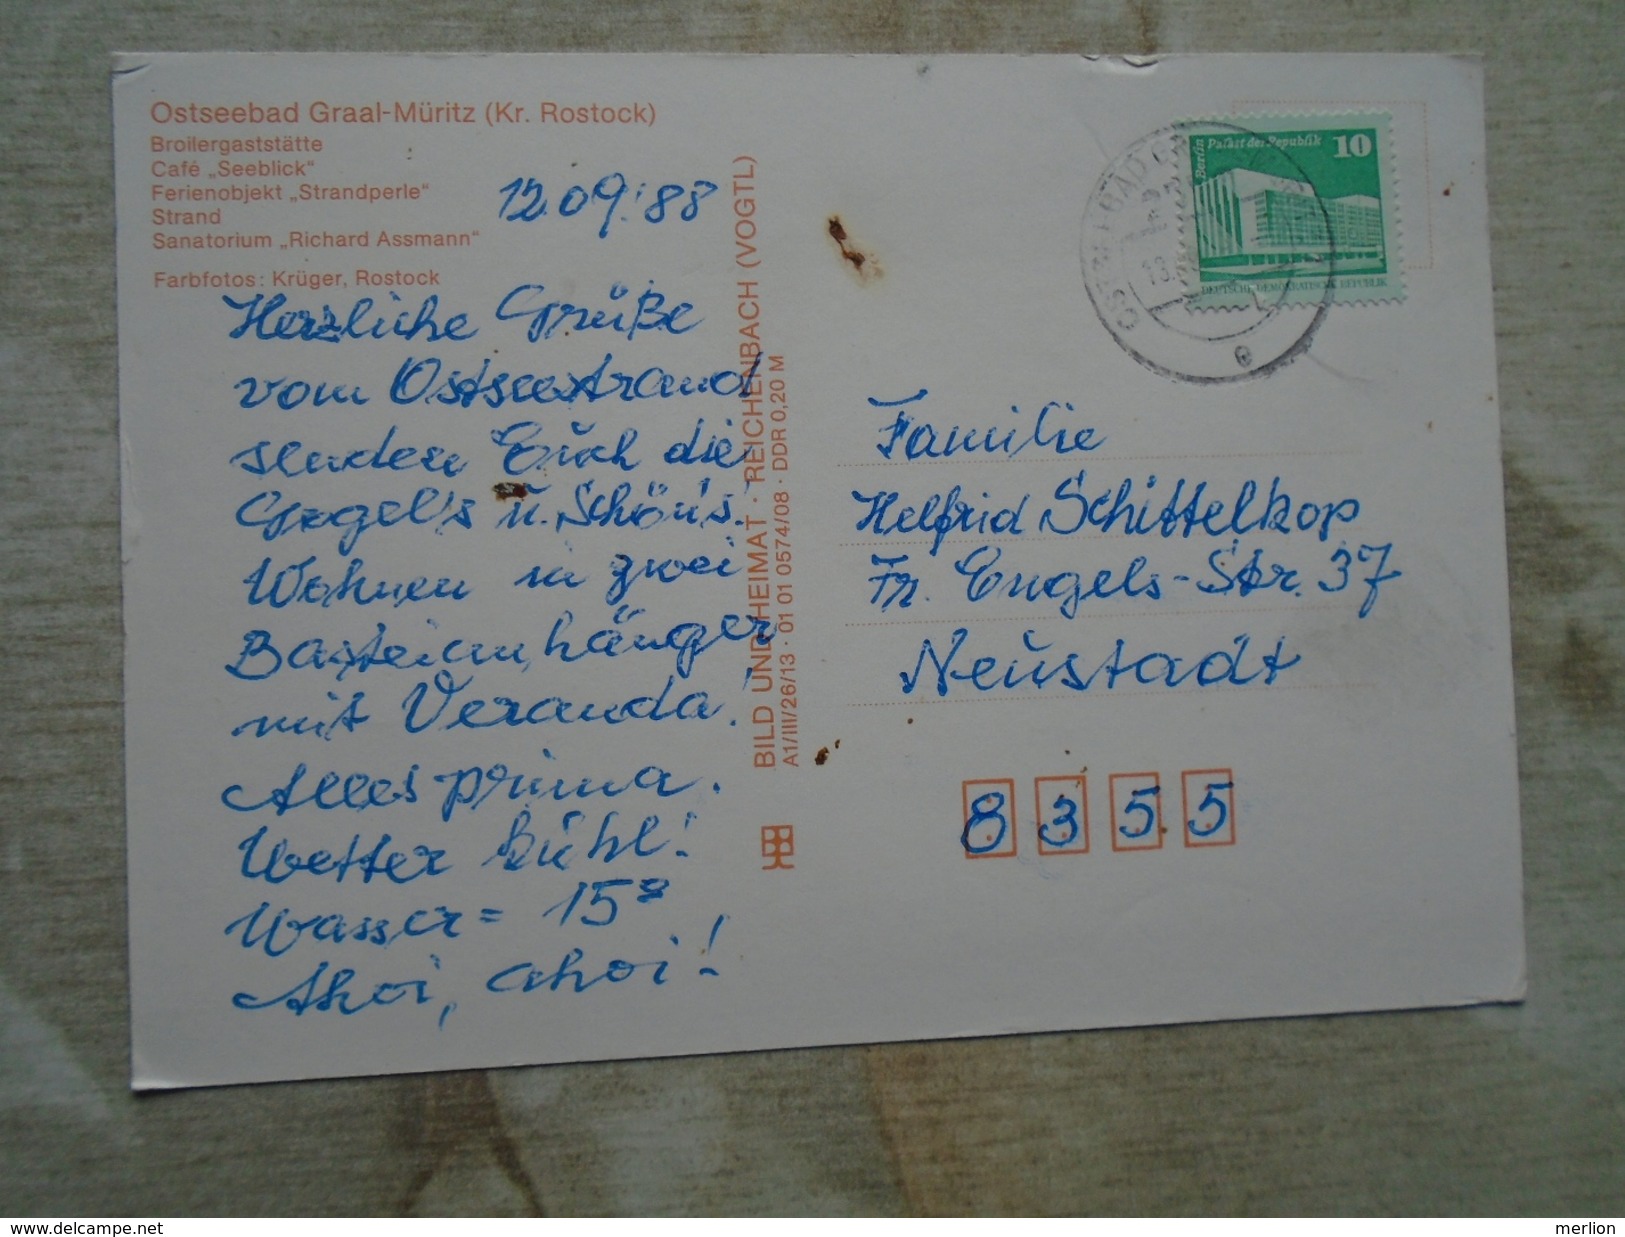 Ostseebad Graal-Müritz (Kr. Rostock)
Broilergaststätte
Café „Seeblick"
Ferienobjekt „Strandperle"
Strand
Sanatorium „Richard Assmann"
Farbfotos: Krüger, Rostock
12.09.88
Herzliche Grüße
vom Ostseestrand
senden Euch die
Gogel's u. Schön's.
Wohnen in zwei
Basteianhänger
mit Veranda!
Alles prima.
Wetter kühl!
Wasser = 15°
Ahoi, ahoi!
BILD UND HEIMAT · REICHENBACH (VOGTL)
A1/III/26/13 · 01 01 0574/08 · DDR 0,20 M
Berlin Palast der Republik 10
DEUTSCHE DEMOKRATISCHE REPUBLIK
Familie
Helfrid Schittelkop
Fr. Engels-Str. 37
Neustadt
8355
delcampe.net
merlion